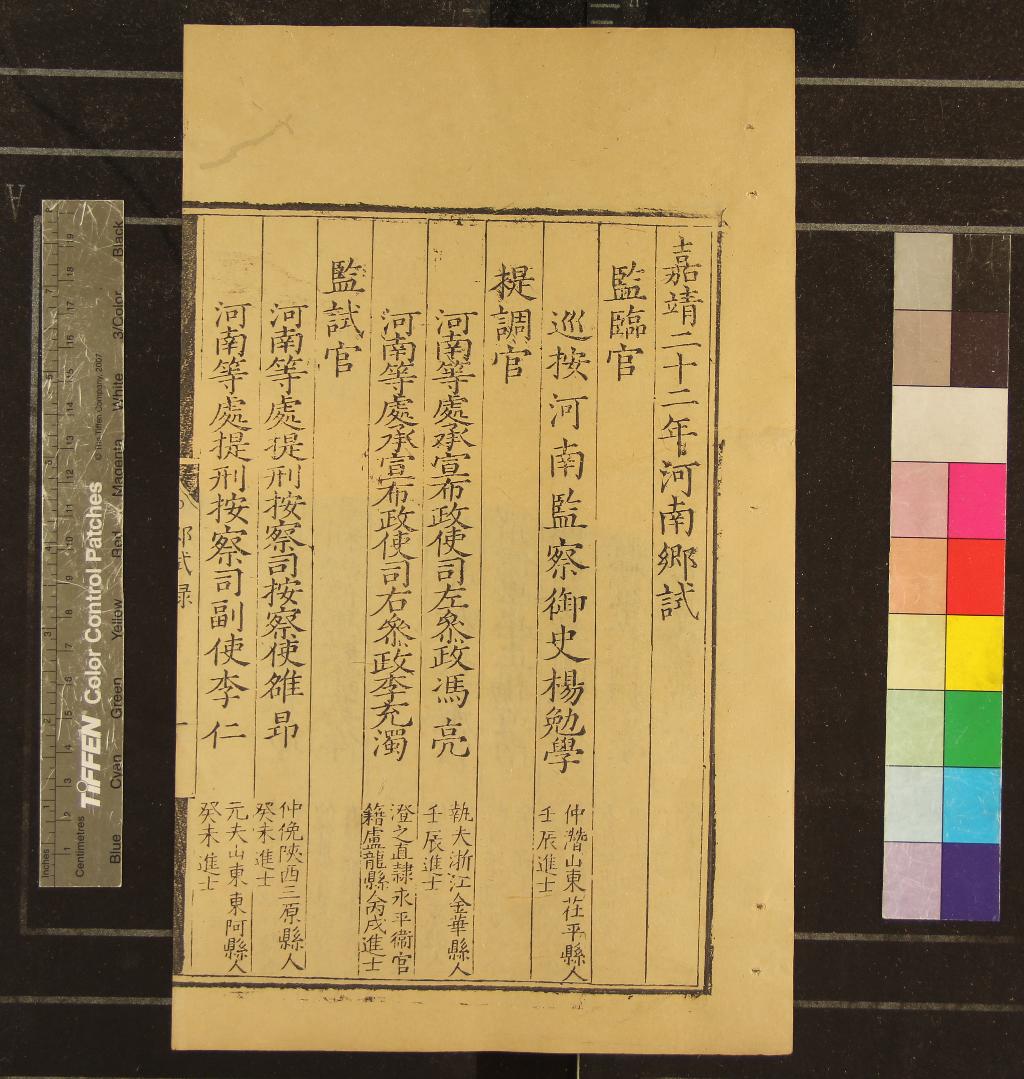 嘉靖二十二年河南鄉試
監臨官
巡按河南監察御史楊勉學
仲潛山東茌平縣人
壬辰進士
提調官
河南等處承宣布政使司左叅政馮亮
執夫浙江金華縣人
壬辰進士
河南等處承宣布政使司右叅政李充濁
澄之直隸永平衞官
籍盧龍縣人丙戌進士
監試官
河南等處提刑按察司按察使雒昂
仲俛陝西三原縣人
癸未進士
河南等處提刑按察司副使李仁
元夫山東東阿縣人
癸未進士
試録
一
Inches
Centimetres
1 2 3 4 5 6 7 8 9 10 11 12 13 14 15 16 17 18 19
TIFFEN Color Control Patches
© The Tiffen Company, 2007
Blue Cyan Green Yellow Red Magenta White 3/Color Black